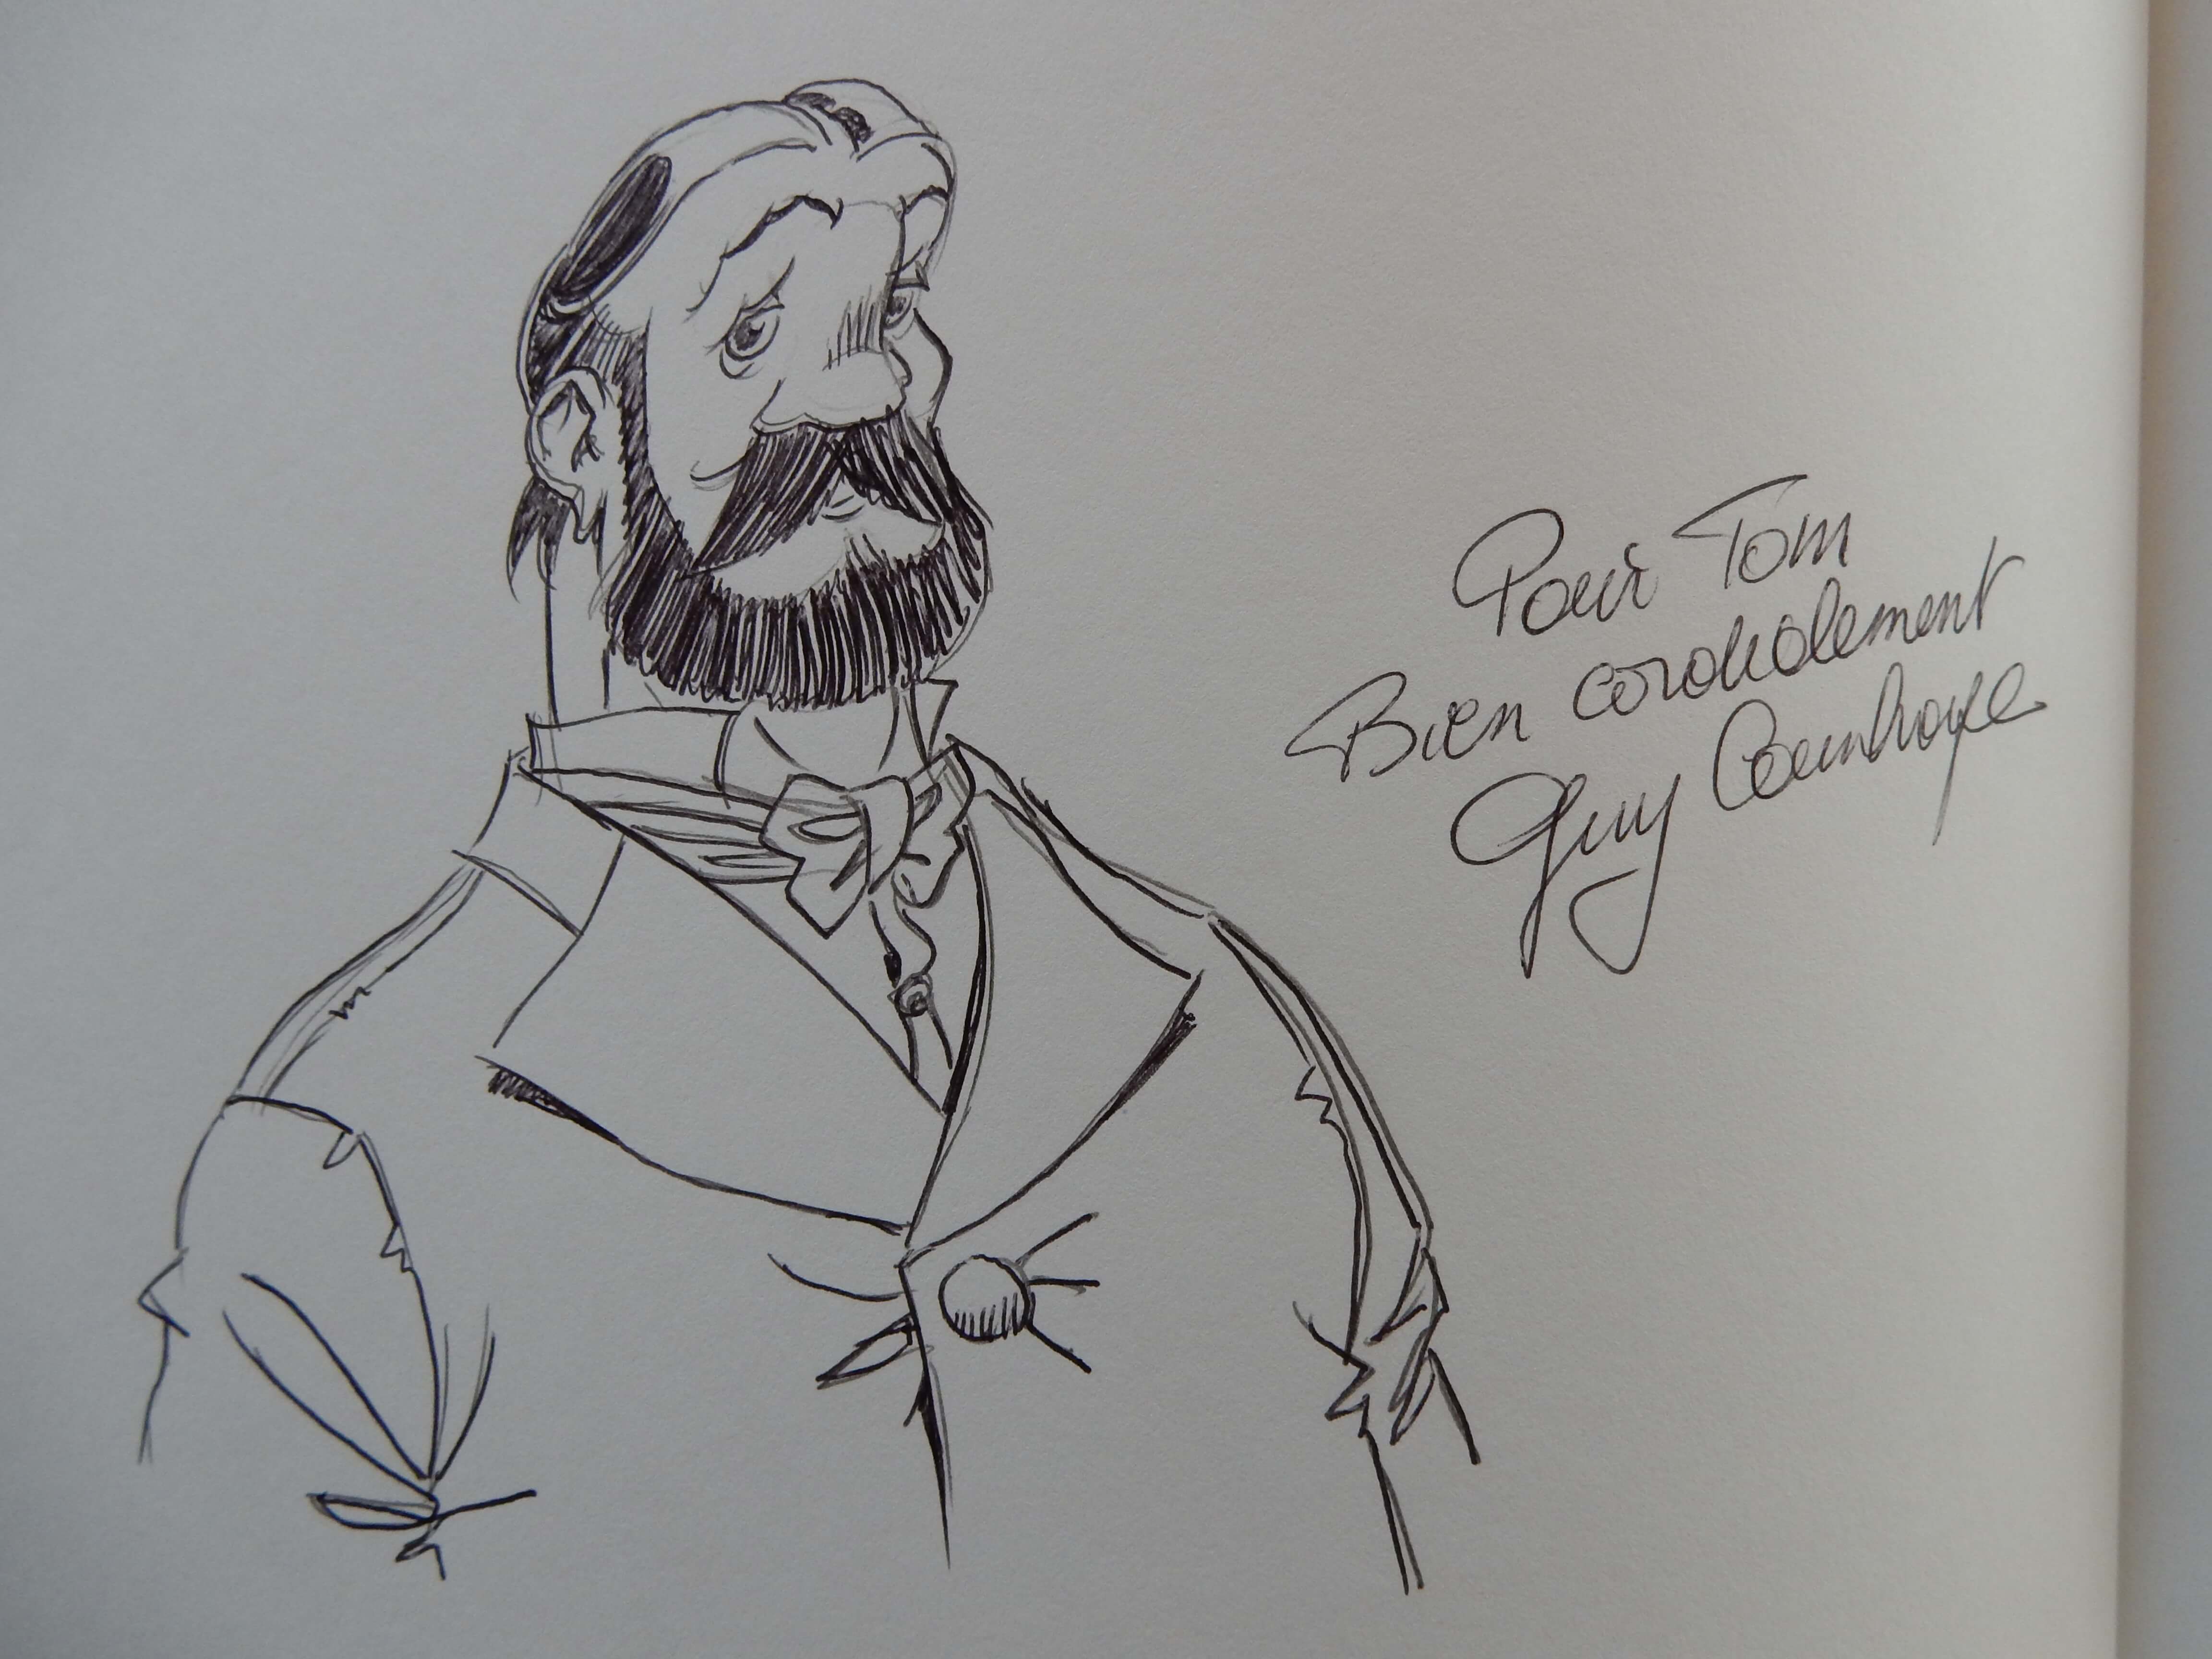 Pour Tom
Bien cordialement
Guy Counhaye